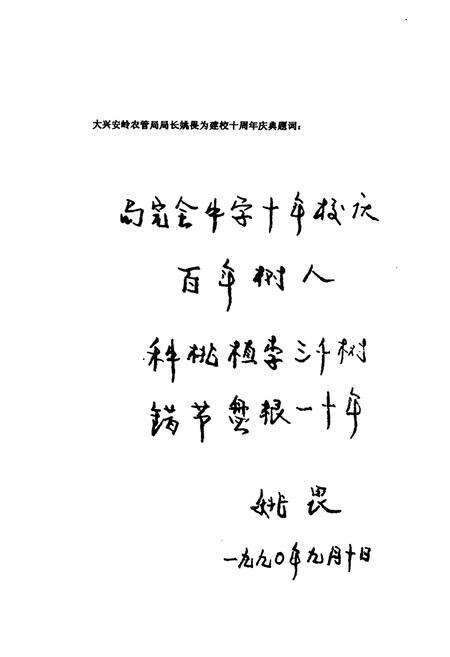 大兴安岭农管局局长姚畏为建校十周年庆典题词:
局完全中学十年校庆
百年树人
种桃植李三千树
错节盘根一十年
姚畏
一九九〇年九月十日